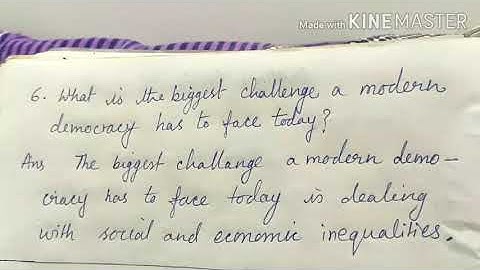 Made with KINEMASTER
6. What is the biggest challenge a modern
democracy has to face today?
Ans The biggest challange a modern demo-
cracy has to face today is dealing
with social and economic inequalities.